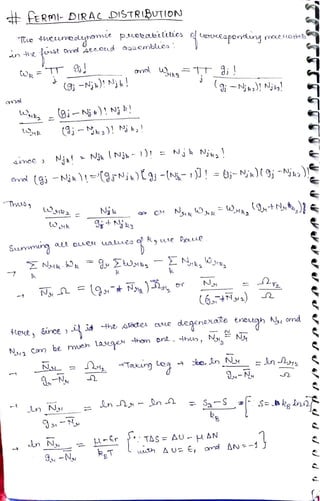 # FERMI- DIRAC DISTRIBUTION
The thermodynamic probabilities of corresponding macrostates
in the first and second assemblies:
Wk = π gj! / (gj - Njk)! Njk! and Wrk2 = π gj! / (gj - Njk2)! Njk2!
j j
and
Wrk2 / Wrk = (gj - Njk)! Njk! / (gj - Njk2)! Njk2!
since, Njk! = Njk (Njk - 1)! = Njk Njk2!
and (gj - Njk)! = (gj - Njk) [gj - (Njk - 1)]! = (gj - Njk) (gj - Njk2)!
Thus,
Wrk2 / Wrk = Njk / gj + Njk2 or Nrk Wrk = Wrk2 (gr + Nrk2)
Summing all over values of k, we have
→ Σ Nrk Wk = gr Σ Wrk2 - Σ Nrk2 Wrk2
k k k
→ Nr Ω = (gr - Nr2) Ωr2 or Nr / (gr - Nr2) = Ωr2 / Ω
Here, since, if the states are degenerate enough Nr and
Nr2 can be much larger than one. thus, Nr2 = Nr
→ Nr / gr - Nr = Ωr2 / Ω → Taking log → ln Nr / gr - Nr = ln Ωr2 / Ω
→ ln Nr / gr - Nr = ln Ωr - ln Ω = S2 - S / kB [∵ S = kB ln Ω]
→ ln Nr / gr - Nr = μ - Er / kB T {∵ TΔS = ΔU - μ ΔN
with Δ U = Er and ΔN = -1}